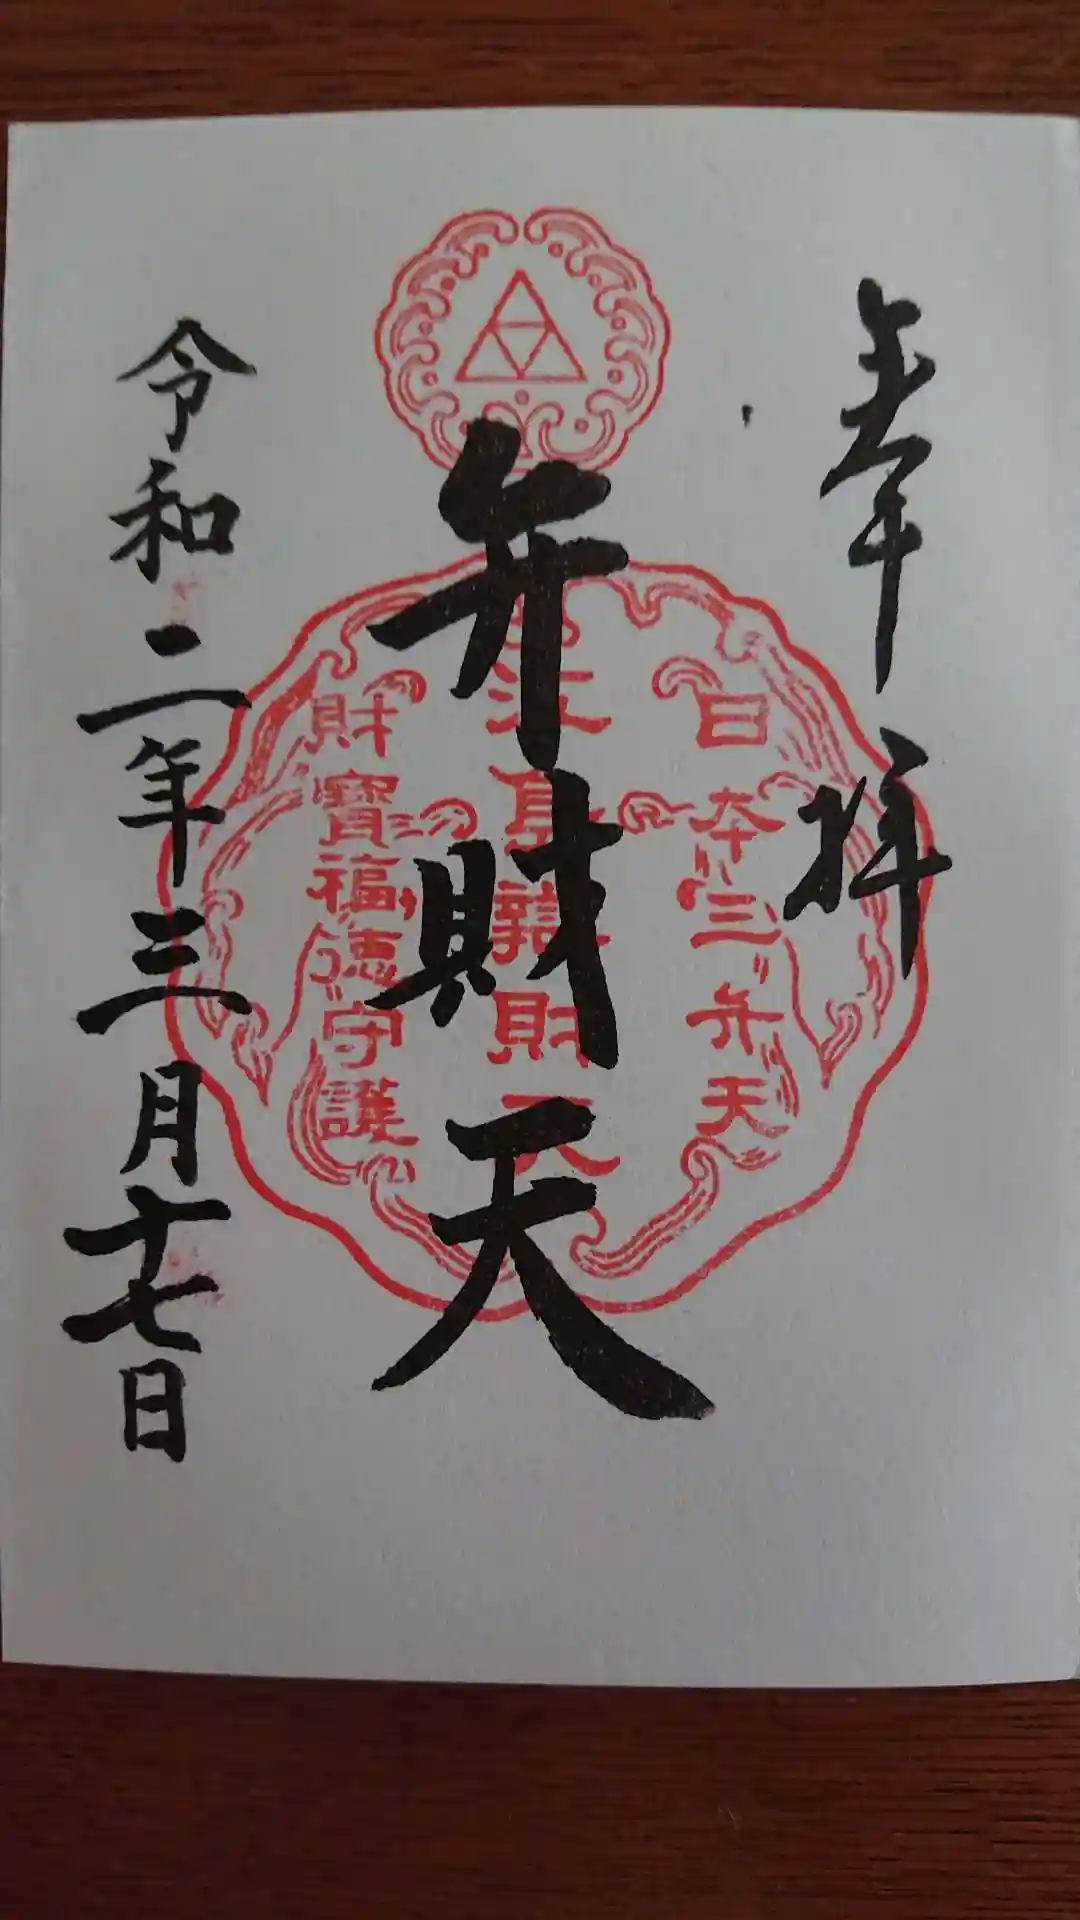 奉拝
日本三弁天
弁財天
江島辯財天
財寶福徳守護
令和二年三月十七日